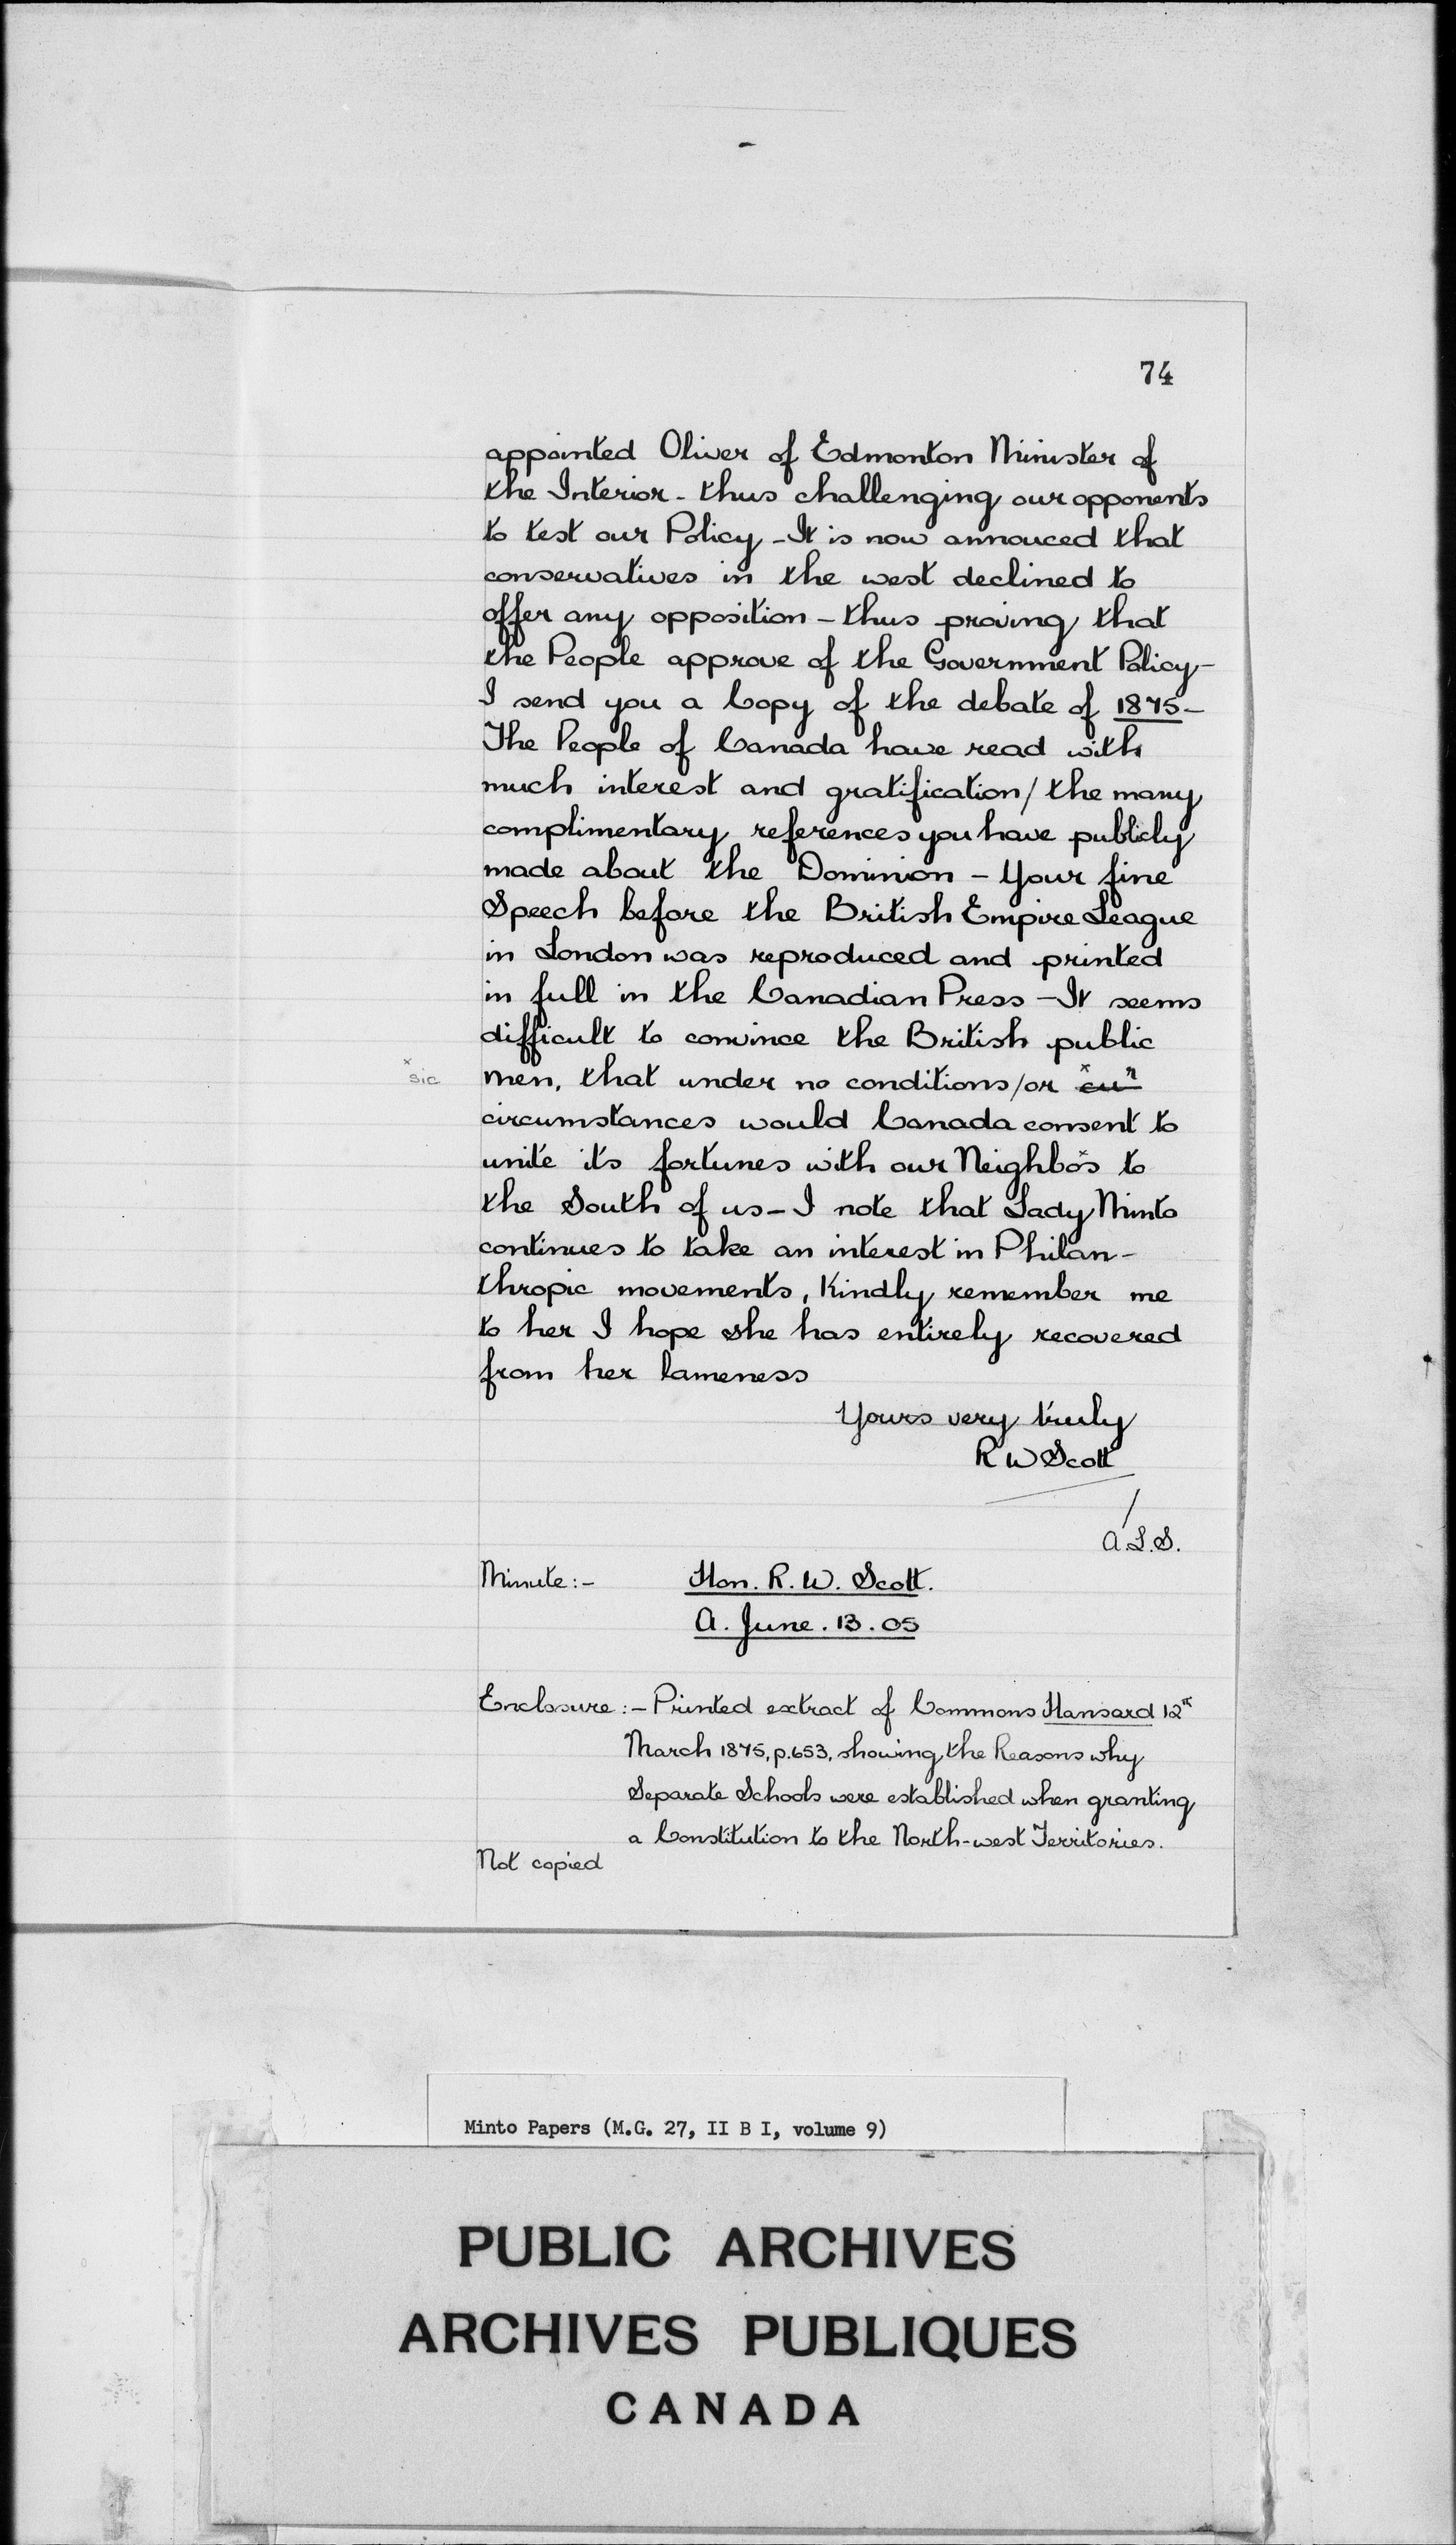 74
appointed Oliver of Edmonton Minister of
the Interior - thus challenging our opponents
to test our Policy - It is now annouced that
conservatives in the west declined to
offer any opposition - thus proving that
the People approve of the Government Policy -
I send you a Copy of the debate of 1875 -
The People of Canada have read with
much interest and gratification / the many
complimentary references you have publicly
made about the Dominion - Your fine
Speech before the British Empire League
in London was reproduced and printed
in full in the Canadian Press - It seems
difficult to convince the British public
x sic men, that under no conditions / or x
circumstances would Canada consent to
unite its fortunes with our Neighbos x to
the South of us - I note that Lady Minto
continues to take an interest in Philan-
thropic movements, Kindly remember me
to her I hope she has entirely recovered
from her lameness
Yours very truly
R W Scott
/
A.L.S.
Minute:- Hon. R. W. Scott.
A. June. 13. 05
Enclosure:- Printed extract of Commons Hansard 12th
March 1875, p.653, showing the Reasons why
Separate Schools were established when granting
a Constitution to the North-west Territories.
Not copied
Minto Papers (M.G. 27, II B I, volume 9)
PUBLIC ARCHIVES
ARCHIVES PUBLIQUES
CANADA